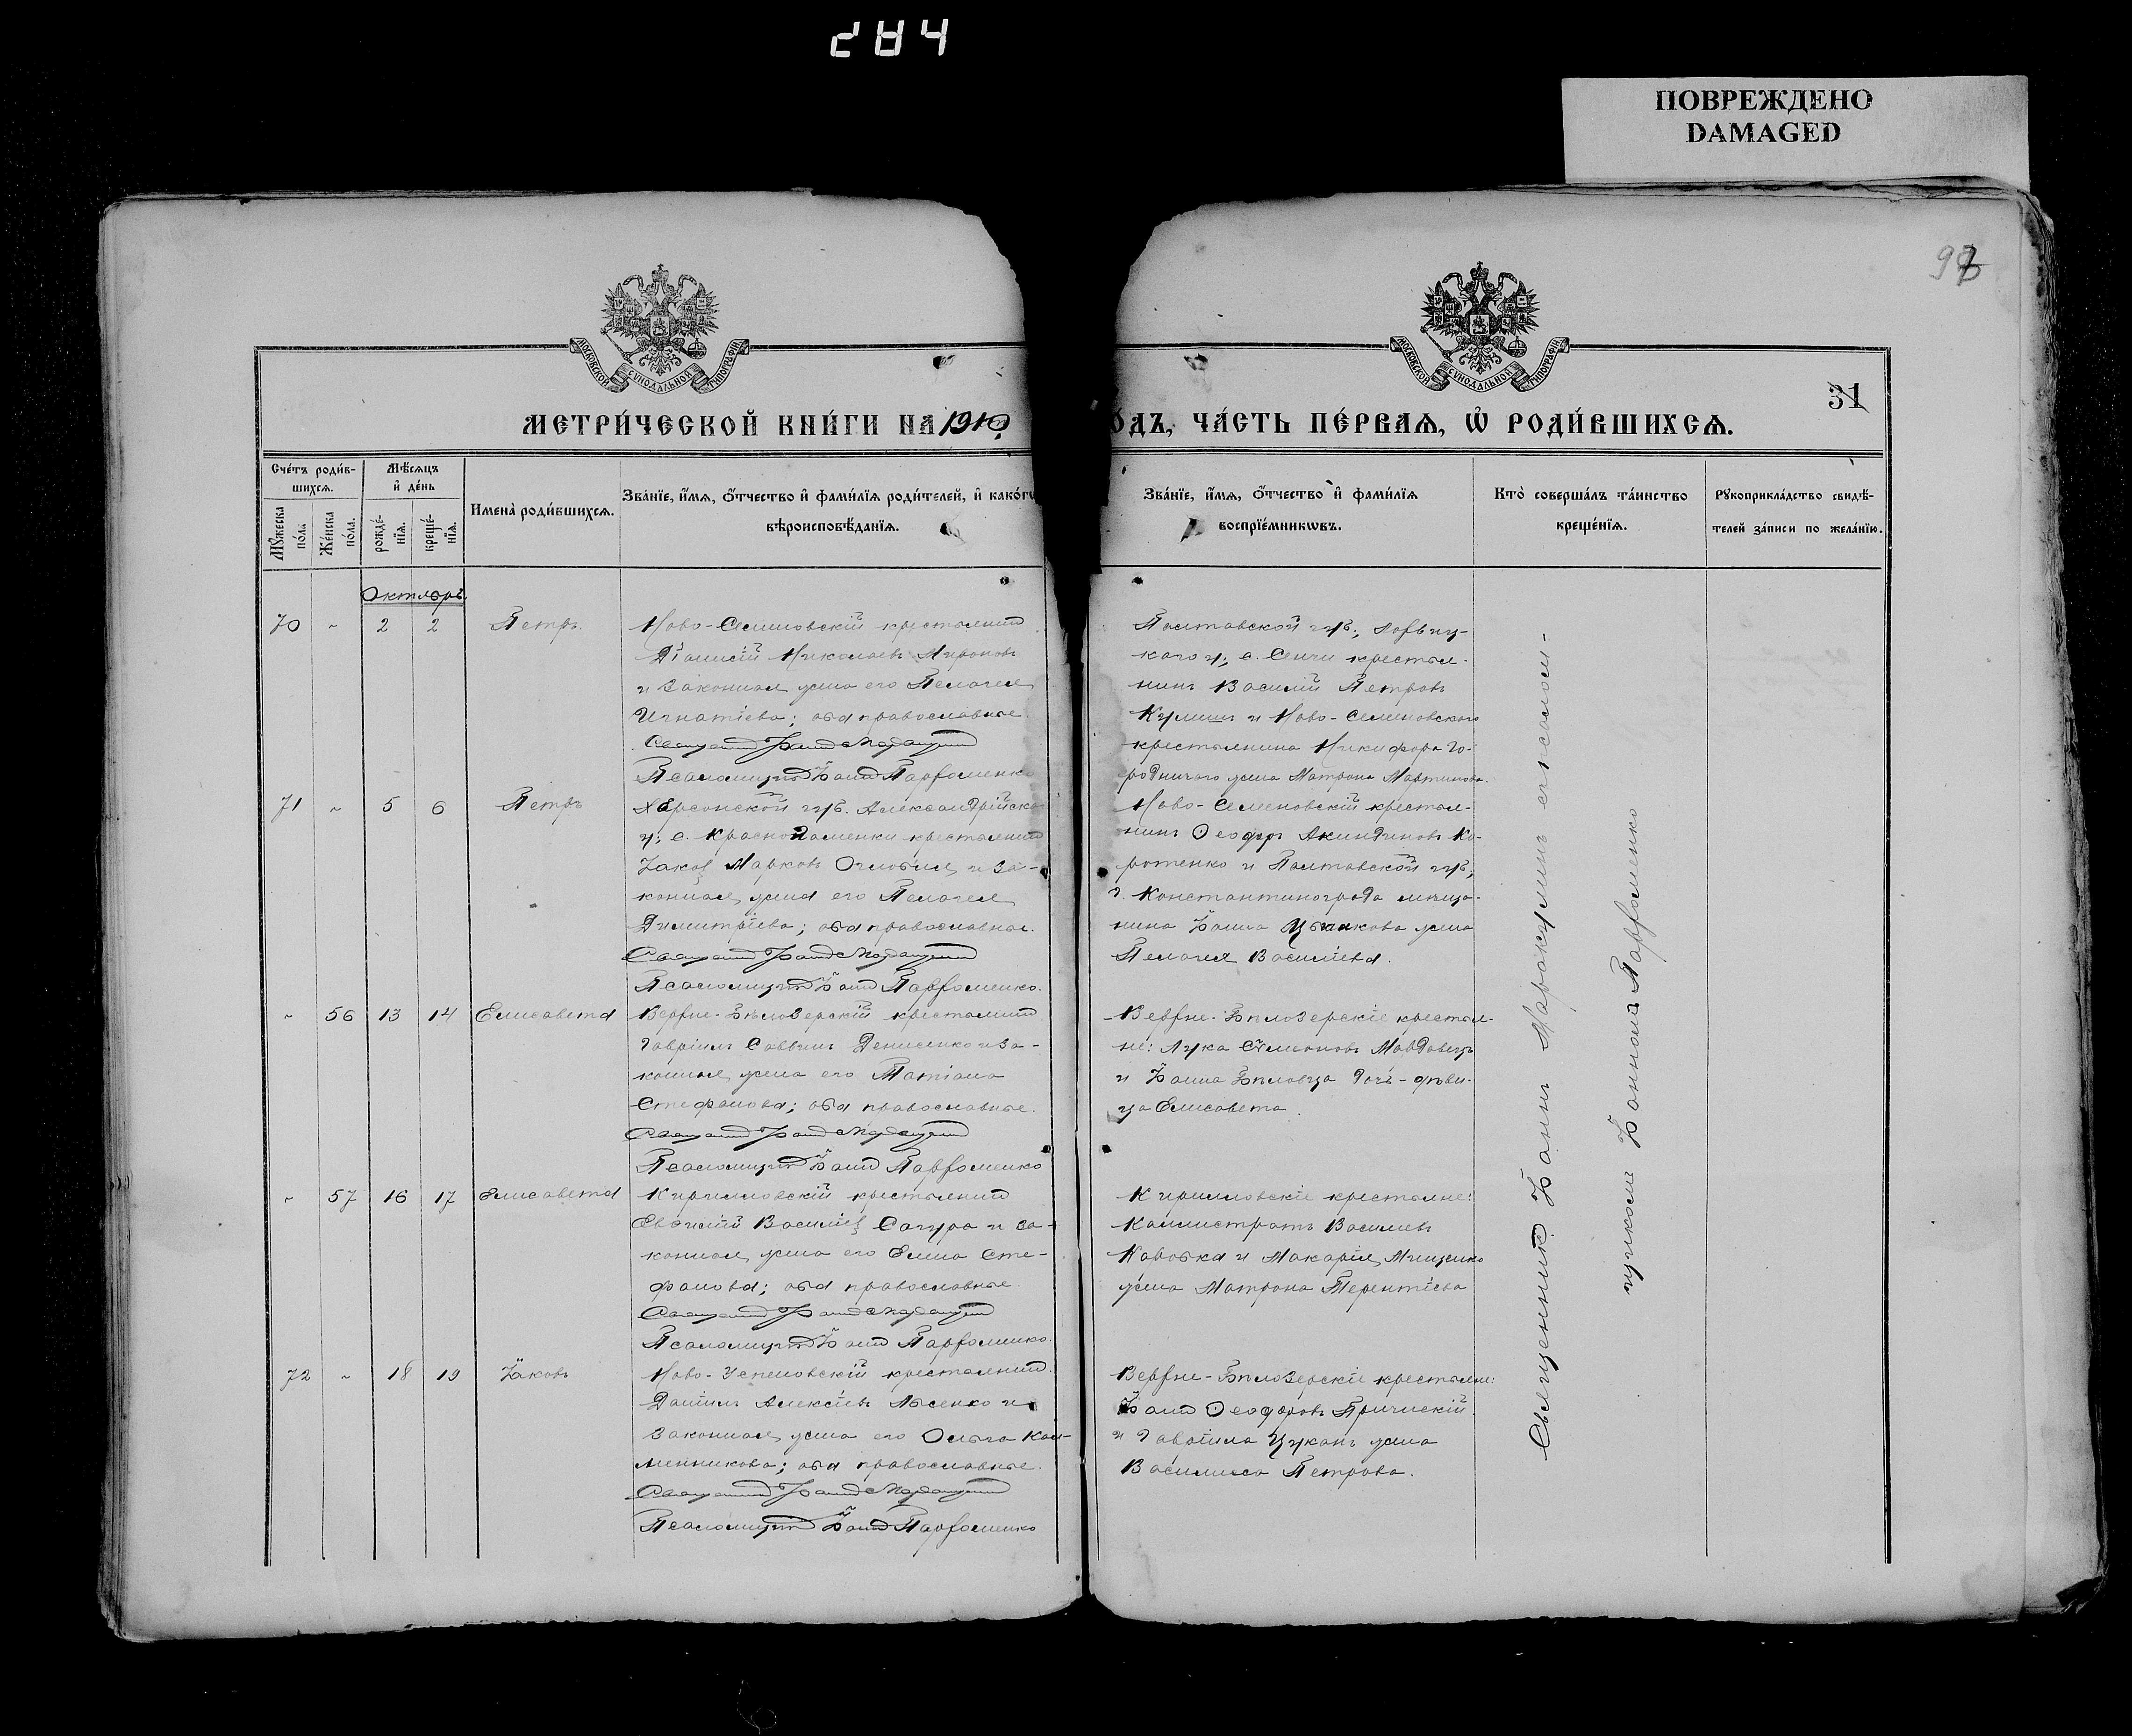 284
ПОВРЕЖДЕНО
DAMAGED
МОСКОВСКОЙ СУНОДАЛЬНОЙ ТИПОГРАФІИ
МОСКОВСКОЙ СУНОДАЛЬНОЙ ТИПОГРАФІИ
31
МЕТРИ́ЧЕСКОЙ КНИ́ГИ НА 1910 О́ДЪ, ЧА́СТЬ ПЕ́РВАѦ, Ѡ҆ РОДИ́ВШИХСѦ.
Сче́тъ роди́в-
шихсѧ.
Мꙋжеска по́ла.
Же́нска по́ла.
Мѣ́сѧцъ
и҆ де́нь
рожде́-
нїѧ.
креще́-
нїѧ.
Имена̀ роди́вшихсѧ.
Зва́нїе, и҆́мѧ, ѻ҆́тчество и҆ фами́лїѧ роди́телей, и҆ како́гѡ
вѣроисповѣ́данїѧ.
Зва́нїе, и҆́мѧ, ѻ҆́тчество и҆ фами́лїѧ
воспрїе́мникѡвъ.
Кто̀ соверша́лъ та́инство
креще́нїѧ.
Рꙋкоприкла́дство свидѣ́-
телей за́писи по жела́нїю.
Октябрь.
70 " 2 2 Петръ.
Ново-Семеновскій крестьянинъ
Николаевъ Мироновъ
и законная жена его Пелагея
Игнатіева; оба православные.
Псаломщикъ Іоаннъ Пархоменко
Полтавской губ.,
каго у., с. Сенчи крестья-
нинъ Василій Петровъ
и Ново-Семеновскаго
крестьянина Никифора Го-
родничаго жена Матрона Мартинова.
71 " 5 6 Петръ
Херсонской губ. Александрійска
у., с. Краснокаменки крестьянинъ
Іаковъ Марковъ и за-
конная жена его Пелагея
Димитріева; оба православные.
Псаломщикъ Іоаннъ Пархоменко.
Ново-Семеновскій крестья-
нинъ Ѳеодоръ Акиндиновъ Ко-
ротенко и Полтавской губ.,
г. Константинограда мѣща-
нина Іоанна жена
Пелагея Василіева.
" 56 13 14 Елисавета
Верхне-Бѣлозерскій крестьянинъ
Гавріилъ Саввинъ Денисенко и за-
конная жена его Татіана
Стефанова; оба православные.
Псаломщикъ Іоаннъ Пархоменко
Верхне-Бѣлозерскіе крестья-
не: Лука Сѵмеоновъ
и Іоанна дочь-дѣви-
ца Елисавета.
" 57 16 17 Елисавета
Кирилловскій крестьянинъ
Евѳимій Василіевъ Сагура и за-
конная жена его Елена Сте-
фанова; оба православные.
Псаломщикъ Іоаннъ Пархоменко.
Кирилловскіе крестьяне:
Каллистратъ Василіевъ
Коробка и Макарія Мищенко
жена Матрона Терентіева
72 " 18 19 Іаковъ
Ново-Успеновскій крестьянинъ
Даніилъ Алексіевъ Лысенко и
законная жена его Ольга Кал-
линникова; оба православные.
Псаломщикъ Іоаннъ Пархоменко
Верхне-Бѣлозерскіе крестьяне:
Іоаннъ Ѳеодоровъ
и Гавріила Цуканъ жена
Василисса Петрова.
Священникъ Іоаннъ съ псалом-
щикомъ Іоанномъ Пархоменко